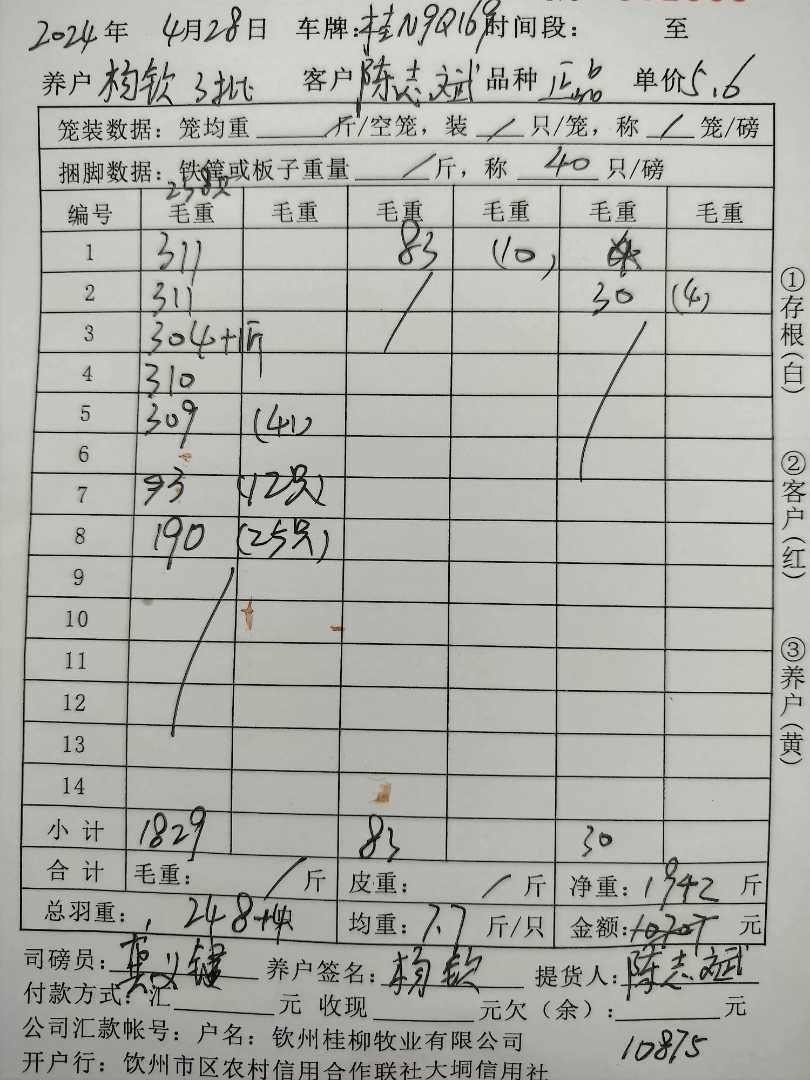 2024年 4月28日 车牌:桂N9Q169 时间段: 至
养户 杨钦 3批 客户 陈志斌 品种 正品 单价 5.6
笼装数据: 笼均重 / 斤/空笼, 装 / 只/笼, 称 / 笼/磅
捆脚数据: 铁笔或板子重量 / 斤, 称 40 只/磅
238只
编号 毛重 毛重 毛重 毛重 毛重 毛重
1 311 83 (10)
2 311 / 30 (4)
3 304+1斤
4 310
5 309 (41)
6
7 93 (12只)
8 190 (25只)
9
10
11
12
13
14
小计 1829 83 30
合计 毛重: / 斤 皮重: / 斤 净重: 1942 斤
总羽重: 248+4只 均重: 7.7 斤/只 金额: 元
司磅员: 养户签名: 杨钦 提货人: 陈志斌
付款方式: 汇 元 收现 元欠(余): 元
公司汇款帐号: 户名: 钦州桂柳牧业有限公司
10875
开户行: 钦州市区农村信用合作联社大垌信用社
①存根(白)
②客户(红)
③养户(黄)